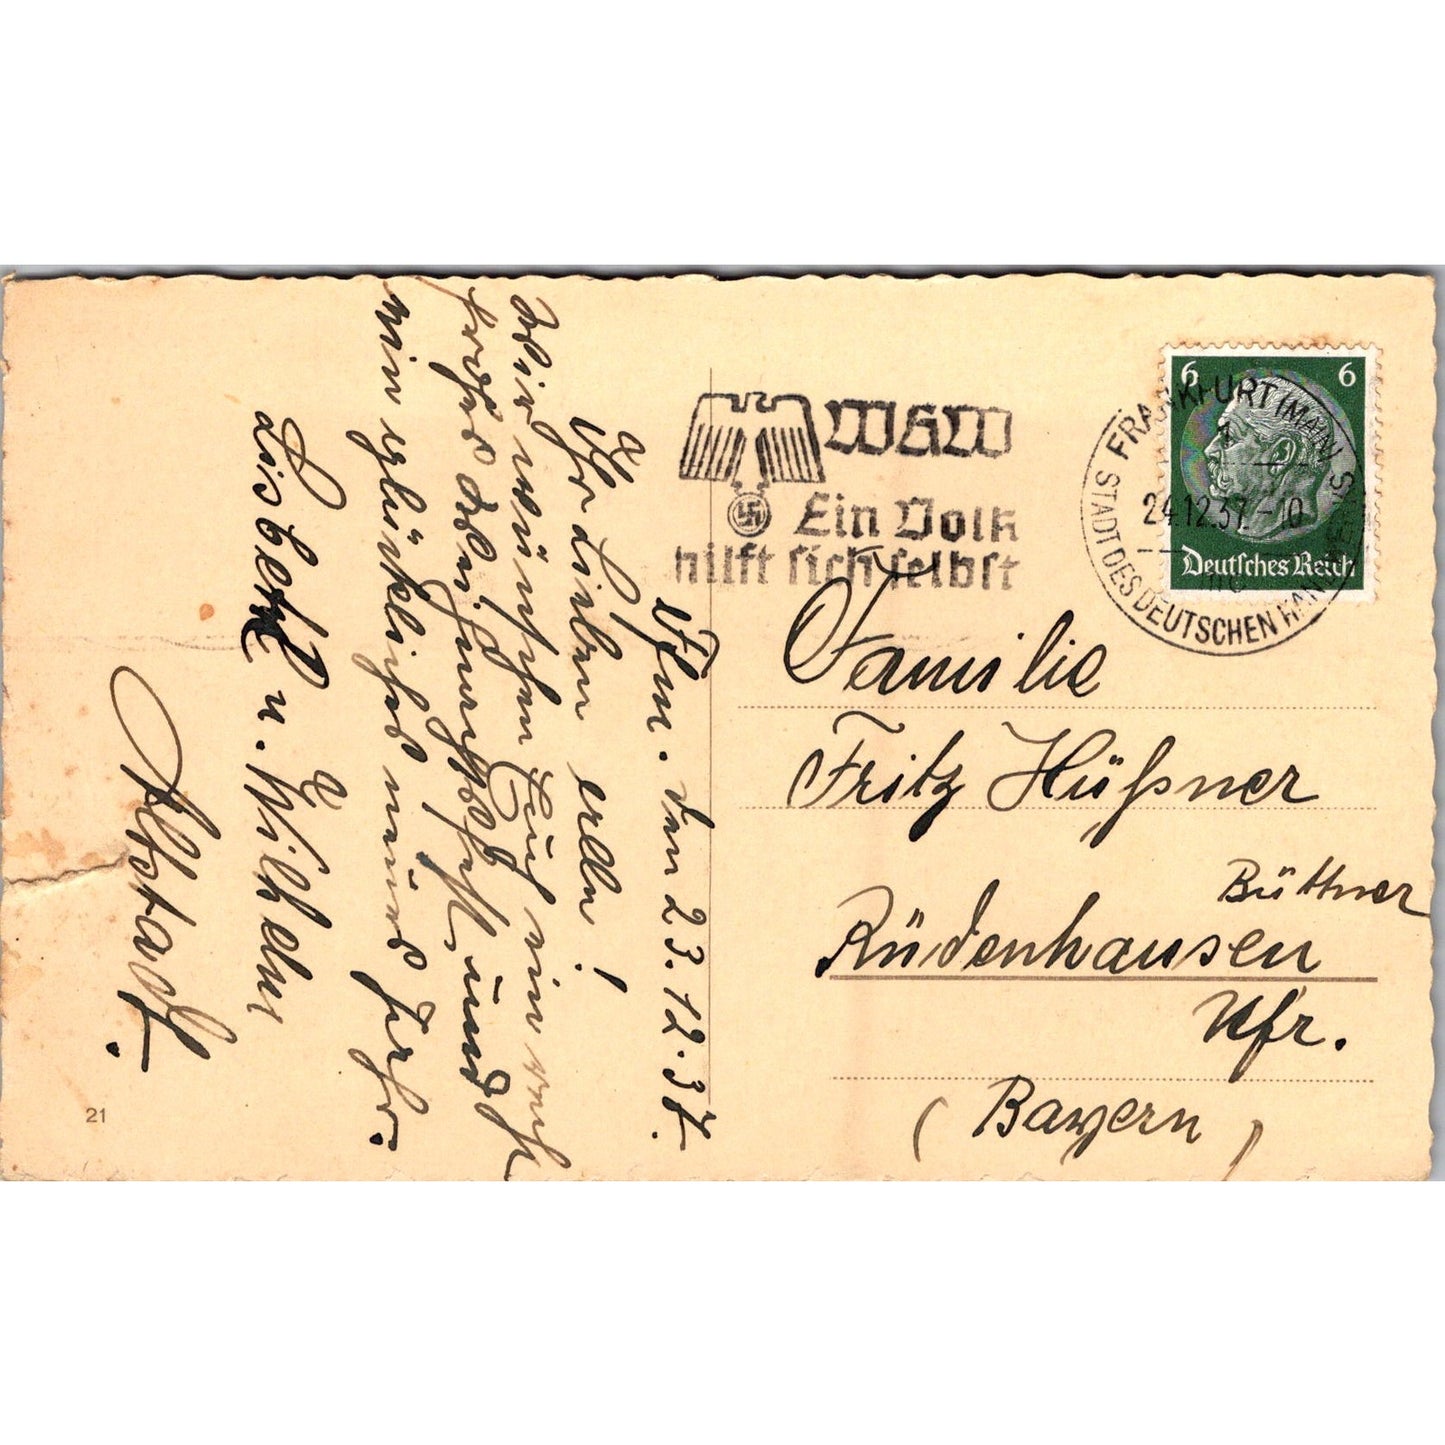 Ffm. den 23.12.37.
Ihr Lieben allen!
Wir wünschen Euch ein recht
frohes Weihnachtsfest, und
ein glückliches neues Jahr.
Lisbethl u. Wilhelm
Altstadt.
21
WHW
Ein Volk
hilft sich selbst
FRANKFURT (MAIN)
24.12.37.-10
STADT DES DEUTSCHEN HAND
6 6
Deutsches Reich
Familie
Fritz Hüßner
Büttner
Rüdenhausen
Ufr.
(Bayern)